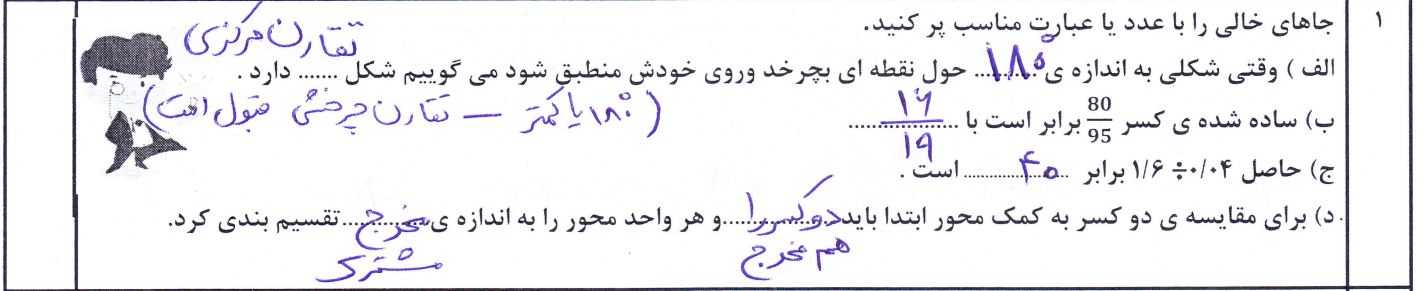 ۱
جاهای خالی را با عدد یا عبارت مناسب پر کنید.
تقارن مرکزی
الف ) وقتی شکلی به اندازه ی ۱۸۰° حول نقطه ای بچرخد وروی خودش منطبق شود می گوییم شکل ....... دارد .
(۱۸۰° یا کمتر — تقارن چرخشی قبول است)
ب) ساده شده ی کسر 80/95 برابر است با ۱۶/۱۹
ج) حاصل ۰/۰۴ ÷ ۱/۶ برابر ۴۰ است .
د) برای مقایسه ی دو کسر به کمک محور ابتدا باید دو کسر را و هر واحد محور را به اندازه ی مخرج تقسیم بندی کرد.
هم مخرج مشترک